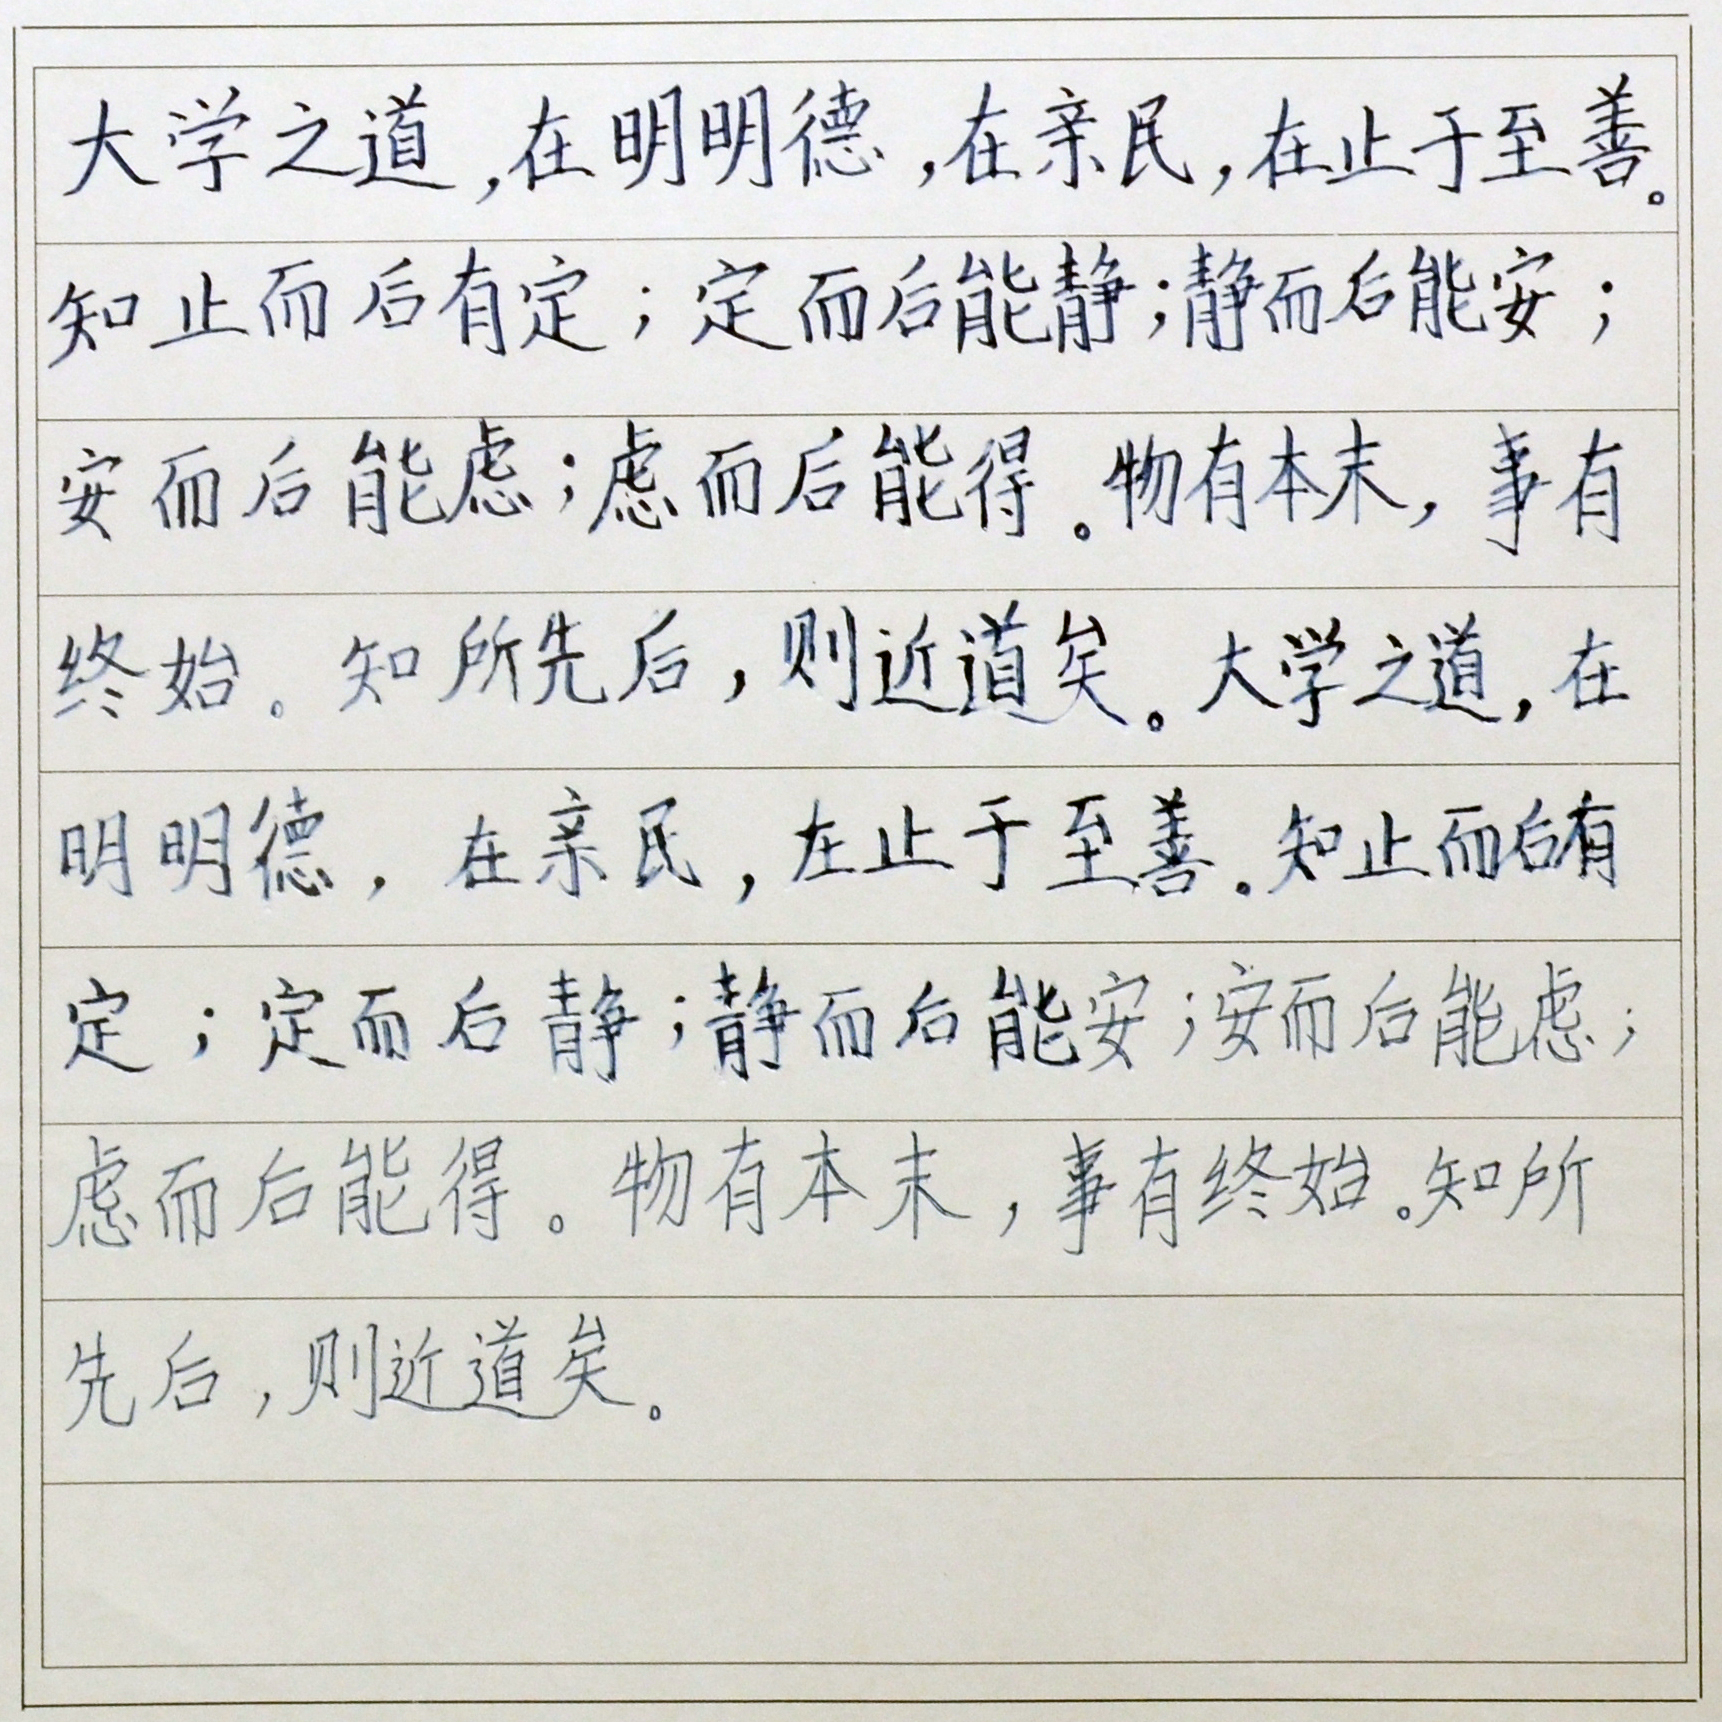 大学之道,在明明德,在亲民,在止于至善。
知止而后有定;定而后能静;静而后能安;
安而后能虑;虑而后能得。物有本末,事有
终始。知所先后,则近道矣。大学之道,在
明明德,在亲民,在止于至善。知止而后有
定;定而后静;静而后能安;安而后能虑;
虑而后能得。物有本末,事有终始。知所
先后,则近道矣。